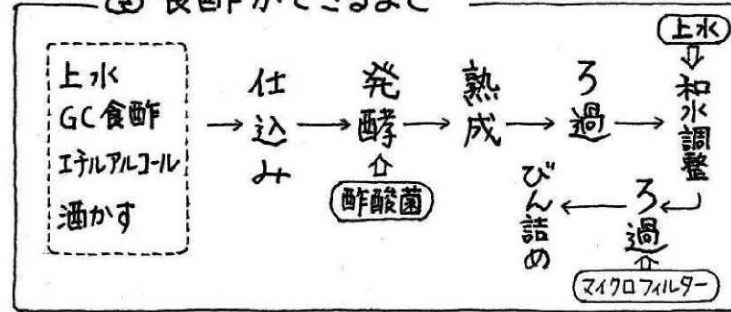 食酢ができるまで
上水
GC食酢
エチルアルコール
酒かす
仕込み
発酵
酢酸菌
熟成
ろ過
上水
和水調整
ろ過
マイクロフィルター
びん詰め